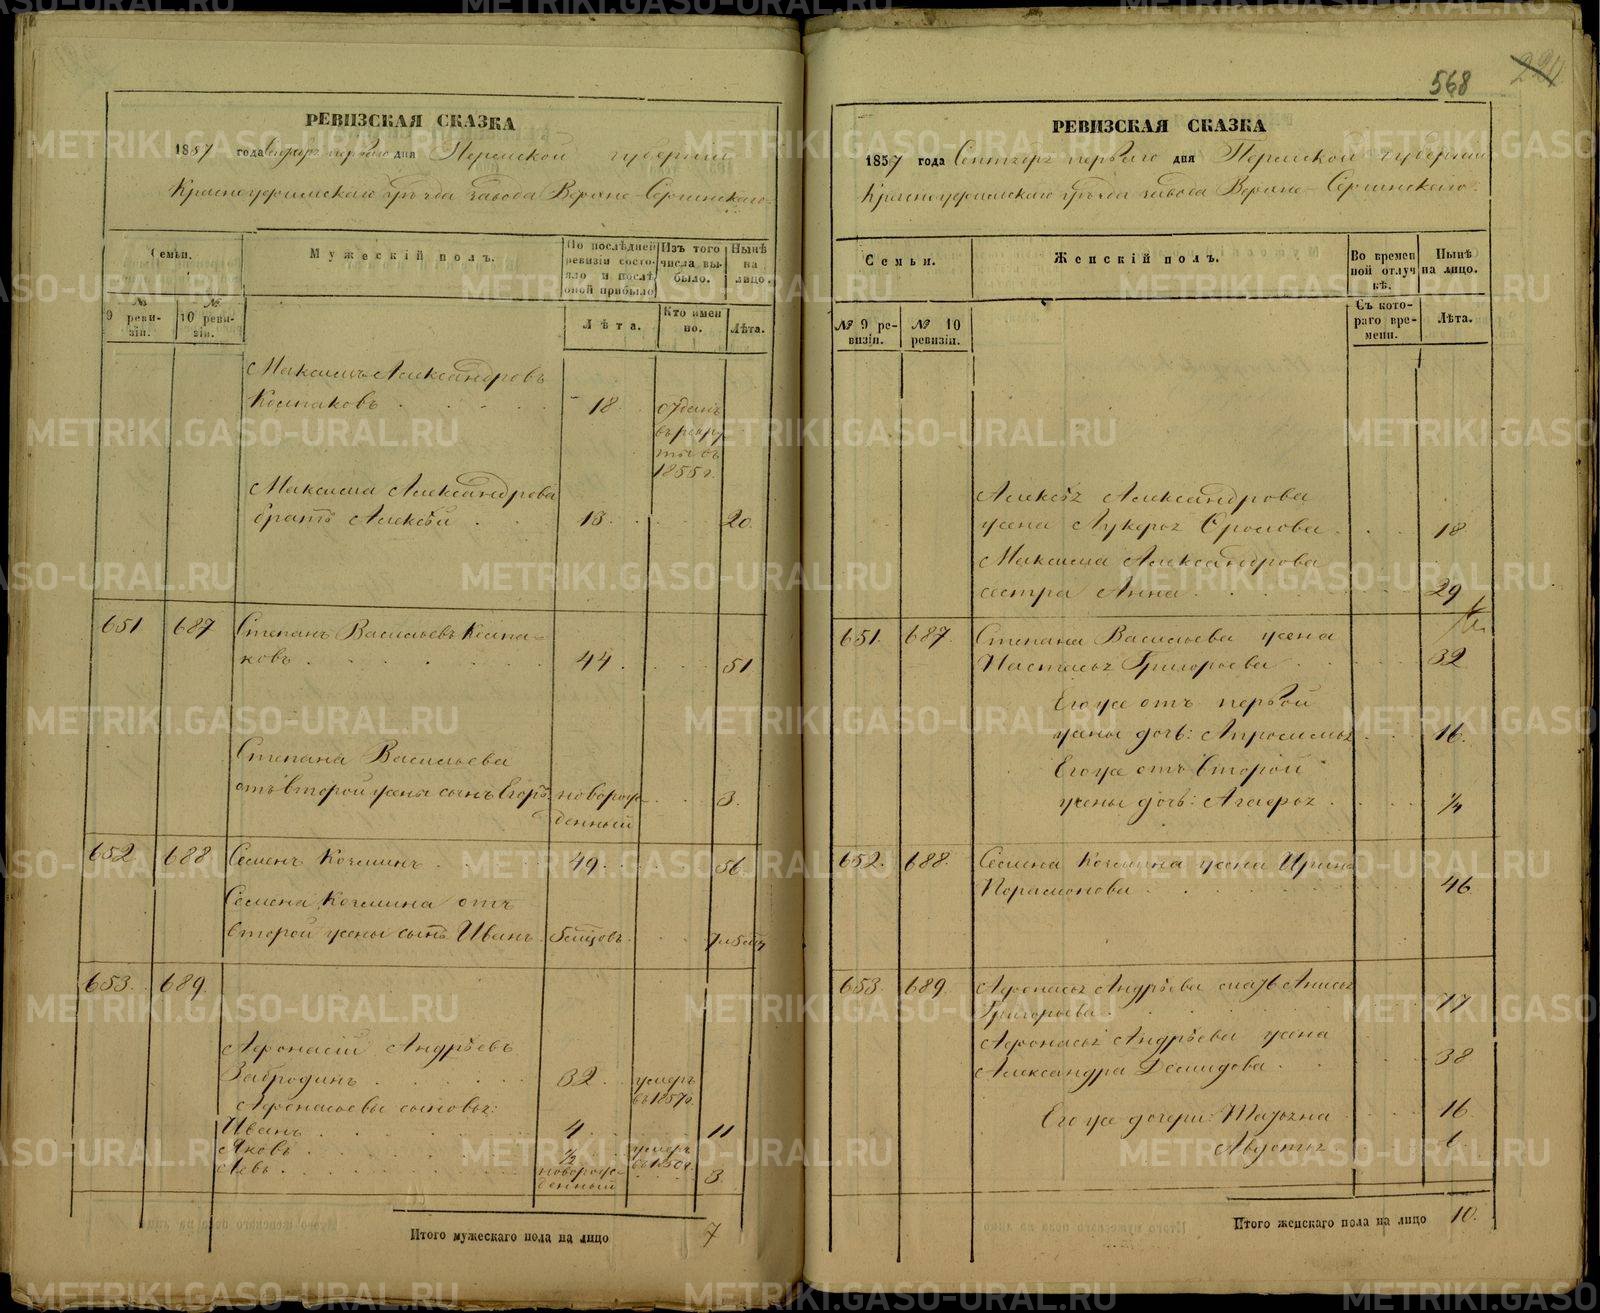 РЕВИЗСКАЯ СКАЗКА
1857 года Сентября первого дня Пермской губернии
Красноуфимского уѣзда завода Верхне-Сергинскаго
Семьи.
Мужескій полъ.
По послѣдней ревизіи состояло и послѣ оной прибыло
Изъ того числа выбыло.
Нынѣ на лицо.
№ 9 ревизіи.
№ 10 ревизіи.
Лѣта.
Кто именно.
Лѣта.
Максимъ Александровъ
Колпаковъ 18 отданъ
въ рекру
ты въ
1855 г.
Максима Александрова
братъ Алексѣй 13 20
651 687 Степанъ Васильевъ Колпа-
ковъ 44 51
Степана Васильева
отъ второй жены сынъ Егоръ новорож-
денный 3
652 688 Семенъ Козминъ 49 56
Семена Козмина отъ
второй жены сынъ Иванъ
653 689
Афонасій Андрѣевъ
Забродинъ 32 умеръ
въ 1857 г.
Афонасьевы сыновья:
Иванъ 4 11
Яковъ 1/2 умеръ
Левъ новорож-
денный 3
Итого мужескаго пола на лицо 7
568
РЕВИЗСКАЯ СКАЗКА
1857 года Сентября первого дня Пермской губерніи
Красноуфимскаго уѣзда завода Верхне-Сергинскаго
Семьи.
Женскій полъ.
Во временной отлучкѣ.
Нынѣ на лицо.
№ 9 ревизіи.
№ 10 ревизіи.
Съ котораго времени.
Лѣта.
Алексѣя Александрова
жена Лукерья Фролова 18
Максима Александрова
сестра Анна 29
651. 687. Степана Васильева жена
Настасья Григорьева 32
Его же отъ первой
жены дочь: Апросимья 16.
Его же отъ второй
жены дочь: Агафья 1/4
652. 688. Семена Козмина жена Ирина
Парамонова 46
653 689. Афонасья Андрѣева мать Анисья
Григорьева 77
Афонасья Андрѣева жена
Александра Демидова 38
Его же дочери: Татьяна 16
Авдотья
Итого женскаго пола на лицо 10.
METRIKI.GASO-URAL.RU